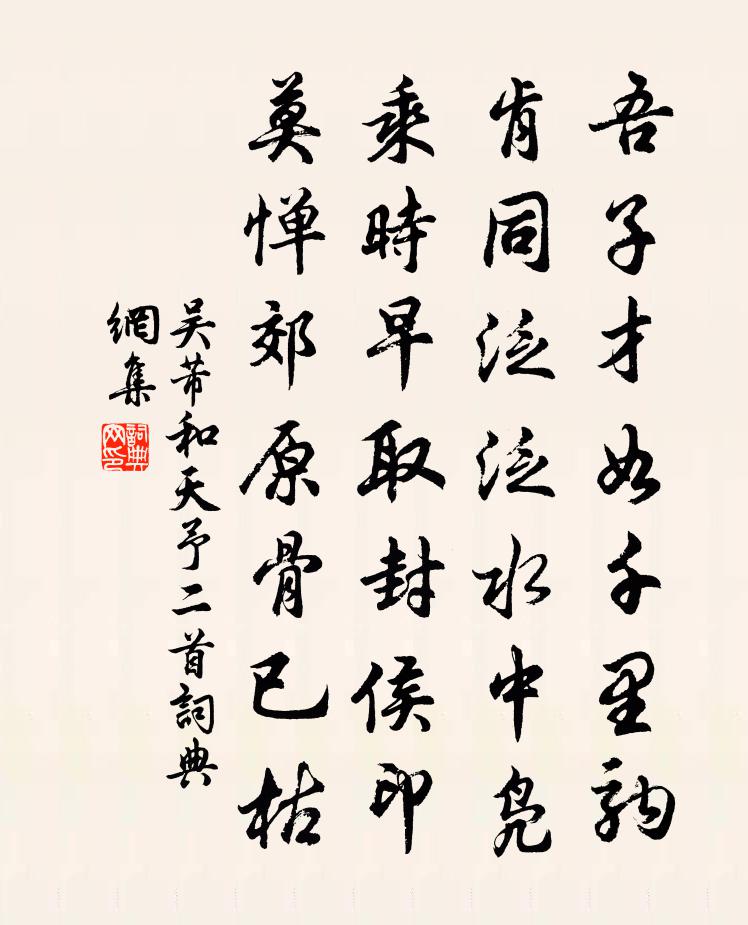 吾子才如千里駒
肯同泛泛水中鳧
乘時早取封侯印
莫惮郊原骨已枯
吴芾和天予二首詞典
網集
詞典
网印